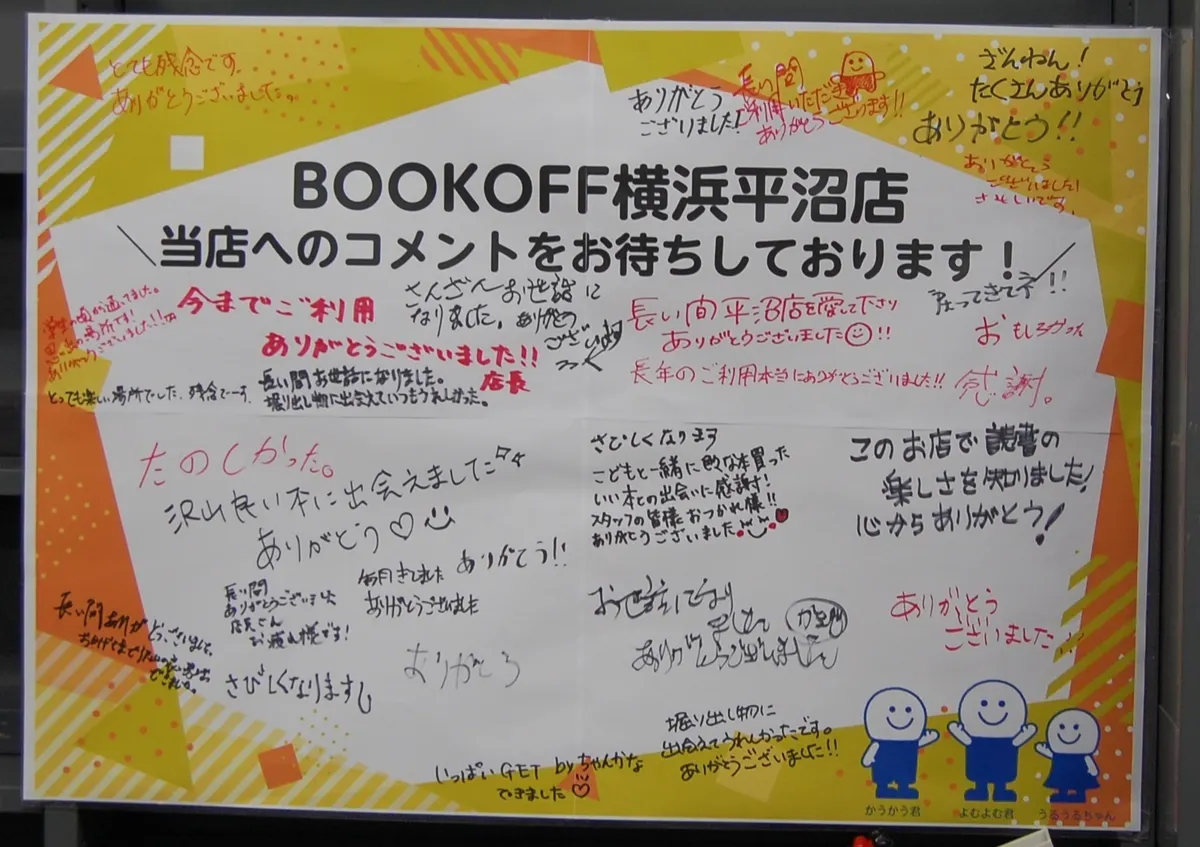 とても残念です。
ありがとうございました。
ありがとう
ございました!
長い間
ご利用いただき
ありがとうございます!!
ざんねん!
たくさんありがとう
ありがとう!!
ありがとう
ございました!
さみしいです。
BOOKOFF横浜平沼店
当店へのコメントをお待ちしております!
学生の頃から通ってました。
思い出の場所です!
ありがとうございました!!
とっても楽しい場所でした。残念でーす。
今までご利用
ありがとうございました!!
店長
さんざんお世話に
なりました。ありがとう
ございました
長い間お世話になりました。
掘り出し物に出会えていつもうれしかった。
長い間平沼店を愛して下さり
ありがとうございました!!
長年のご利用本当にありがとうございました!!
戻ってきて下さい!!
おもしろかった
感謝。
たのしかった。
沢山良い本に出会えました
ありがとう♡
さびしくなります
こどもと一緒に色々な本買った
いい本との出会いに感謝す!
スタッフの皆様おつかれ様!!
ありがとうございました
このお店で読書の
楽しさを知りました!
心からありがとう!
毎月きてました
ありがとうございました
ありがとう!!
長い間
ありがとうございました
店員さん
お疲れ様です!
長い間ありが
とうございました。
さびしくなりますし
ありがとう
お世話になり
ました
ありがとうございました
ありがとう
ございました!!
掘り出し物に
出会えてうれしかったです。
ありがとうございました!!
いっぱいGET by ちゃんかな
できました
かうかう君
よむよむ君
うるうるちゃん